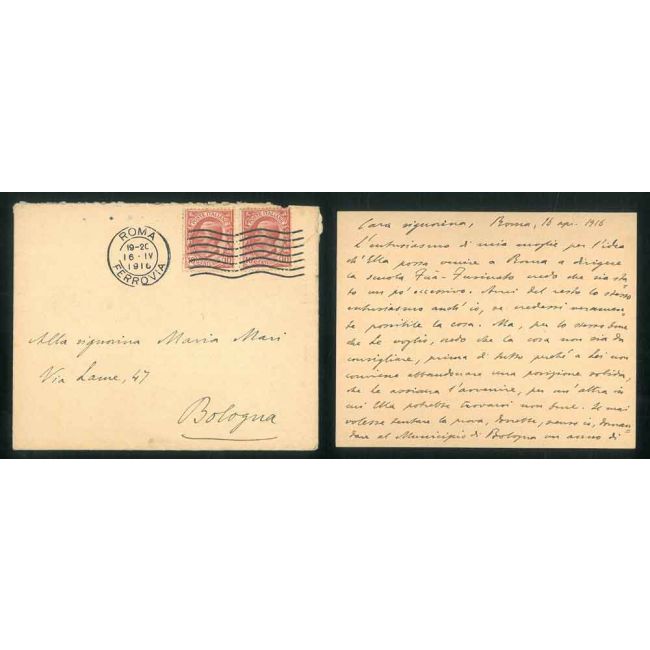 ROMA
19-20
16·IV
1916
FERROVIA
POSTE ITALIANE
POSTE ITALIANE
Alla signorina Maria Mari
Via Lame, 47
Bologna
Cara signorina, Roma, 16 apr. 1916
L'entusiasmo di mia moglie per l'idea
ch'Ella possa venire a Roma a dirigere
la scuola Fuà-Fusinato credo che sia sta=
to un po' eccessivo. Avrei del resto lo stesso
entusiasmo anch'io, se credessi veramen=
te possibile la cosa. Ma, per lo stesso bene
che Le voglio, credo che la cosa non sia da
consigliare, prima di tutto perché a Lei non
conviene abbandonare una posizione solida,
che Le assicura l'avvenire, per un'altra in
cui Ella potrebbe trovarsi non bene. Se mai
volesse tentare la prova, dovrebbe, penso io, doman=
dare al Municipio di Bologna un anno di